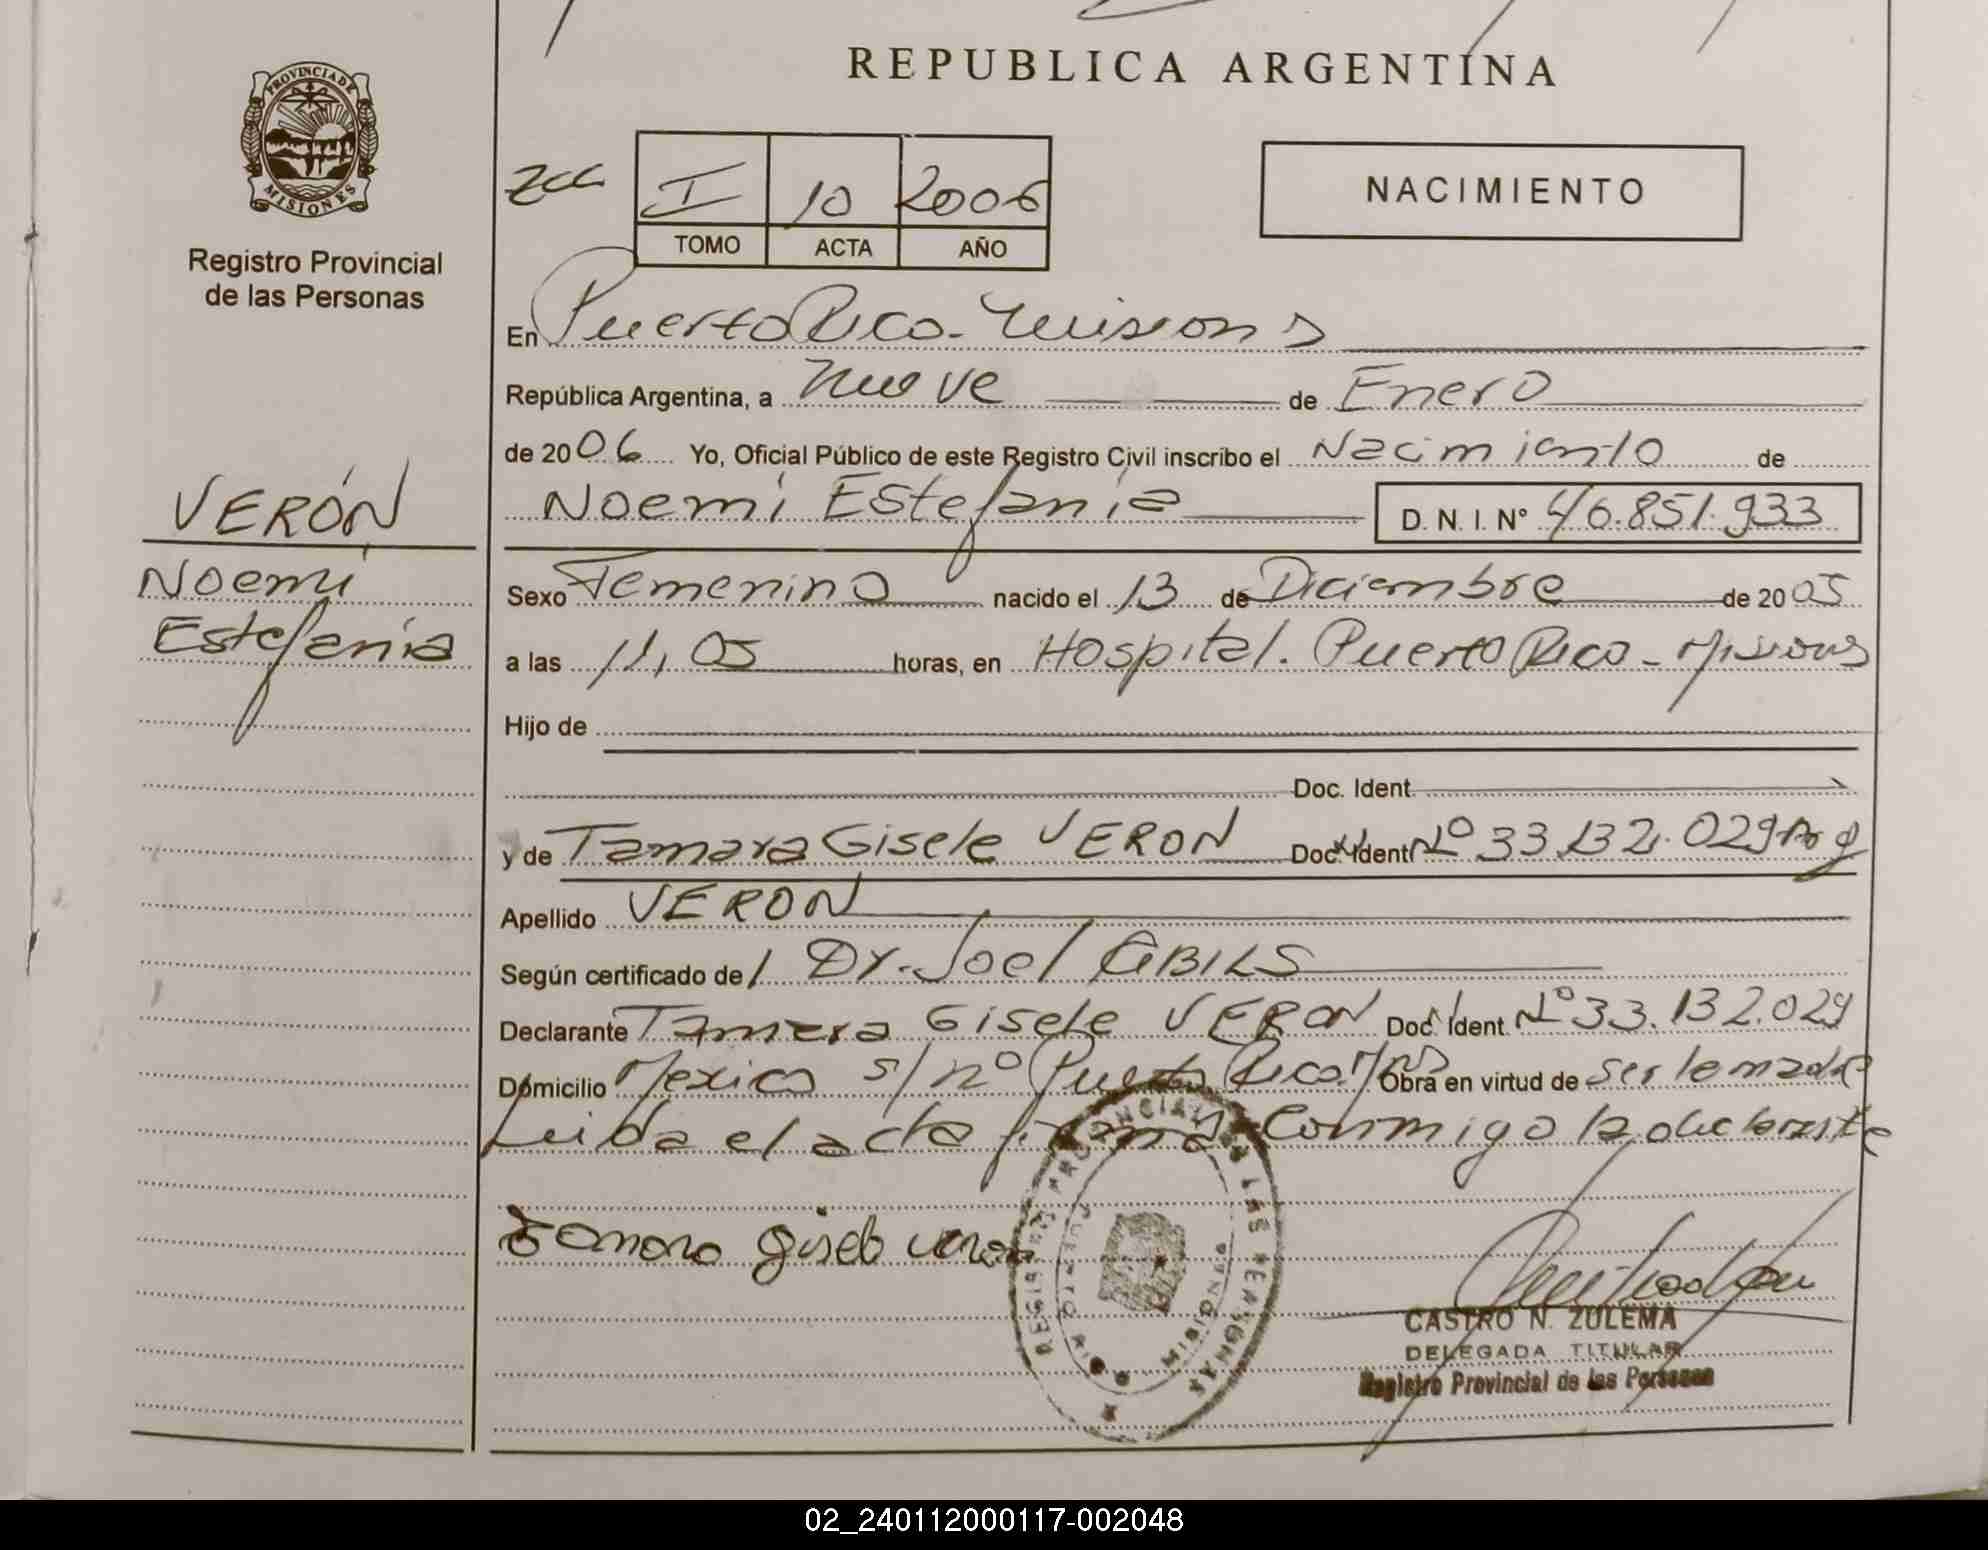 REPUBLICA ARGENTINA
PROVINCIA DE MISIONES
Registro Provincial
de las Personas
I 10 2006
TOMO ACTA AÑO
NACIMIENTO
En Puerto Rico - Misiones
República Argentina, a nueve de Enero
de 2006 Yo, Oficial Público de este Registro Civil inscribo el Nacimiento de
Noemi Estefania D. N. I. Nº 46.851.933
VERÓN
Noemi
Estefania
Sexo Femenino nacido el 13 de Diciembre de 2005
a las 11,05 horas, en Hospital. Puerto Rico - Misiones
Hijo de
Doc. Ident.
y de Tamara Gisele VERON Doc. Ident Nº 33.132.029 Arg
Apellido VERON
Según certificado de Dr. Joel ABILS
Declarante Tamara Gisele VERON Doc. Ident Nº 33.132.029
Domicilio Mexico s/nº Puerto Rico Mnes Obra en virtud de ser la madre
Leida el acta firma conmigo la declarante
Tamara gisele veron
REGISTRO PROVINCIAL DE LAS PERSONAS
PUERTO RICO MISIONES
CASTRO N. ZULEMA
DELEGADA TITULAR
Registro Provincial de las Personas
02_240112000117-002048